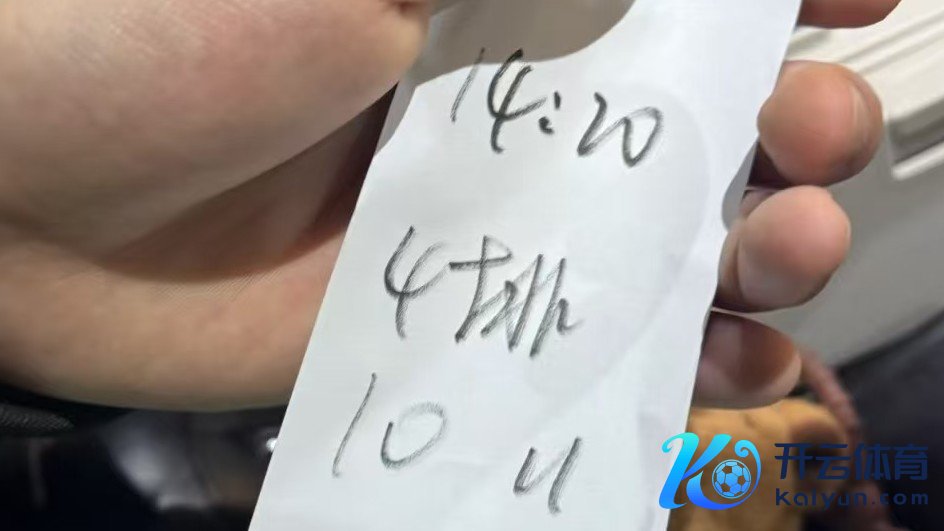 14:20
4排
10 11
开云体育
kaiyun.com